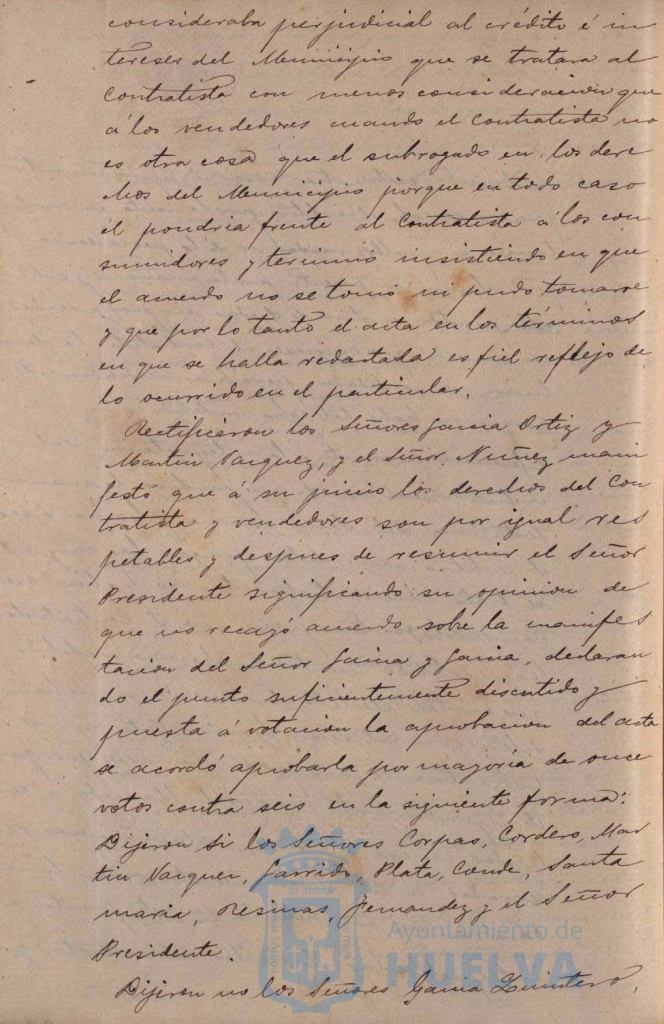 consideraba perjudicial al crédito é in
tereses del Municipio que se tratara al
Contratista con menos consideracion que
á los vendedores cuando el Contratista no
es otra cosa que el subrogado en los dere
chos del Municipio porque en todo caso
él pondria frente al Contratista á los con
sumidores y terminó insistiendo en que
el acuerdo no se tomó ni pudo tomarse
y que por lo tanto el acta en los términos
en que se halla redactada es fiel reflejo de
lo ocurrido en el particular.
Rectificaron los Señores Garcia Ortiz y
Martin Vazquez, y el Señor Nuñez mani
festó que á su juicio los derechos del Con
tratista y vendedores son por igual res
petables y despues de resumir el Señor
Presidente significando su opinion de
que no recayó acuerdo sobre la manifes
tacion del Señor Garcia y Garcia, declaran
do el punto suficientemente discutido y
puesta á votacion la aprobacion del acta
se acordó aprobarla por mayoría de once
votos contra seis en la siguiente forma:
Dijeron si los Señores Corpas, Cordero, Mar
tin Vazquez, Garrido, Plata, Conde, Santa
maria, Resinas, Fernandez y el Señor
Presidente.
Dijeron no los Señores Garcia
Ayuntamiento de
HUELVA